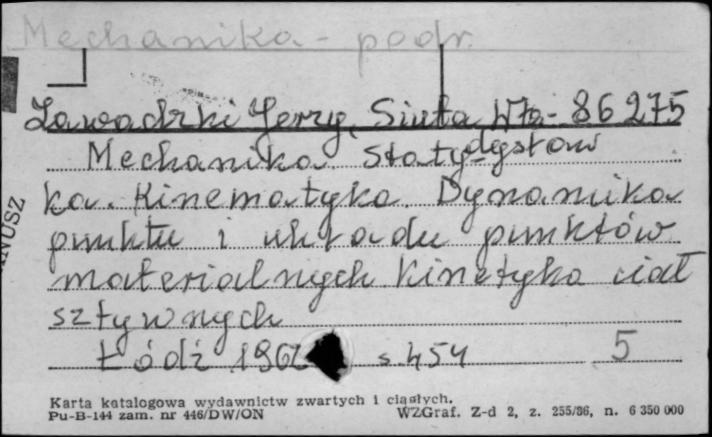 Mechanika - podr.
Zawadzki Jerzy, Siuta Wła- 86 275
dysław
Mechanika. Staty-
ka. Kinematyka. Dynamika
punktu i układu punktów
materialnych Kinetyka ciał
sztywnych
Łódź 196 s. 454 5
NUSZ
Karta katalogowa wydawnictw zwartych i ciągłych.
Pu-B-144 zam. nr 446/DW/ON WZGraf. Z-d 2, z. 255/86, n. 6 350 000